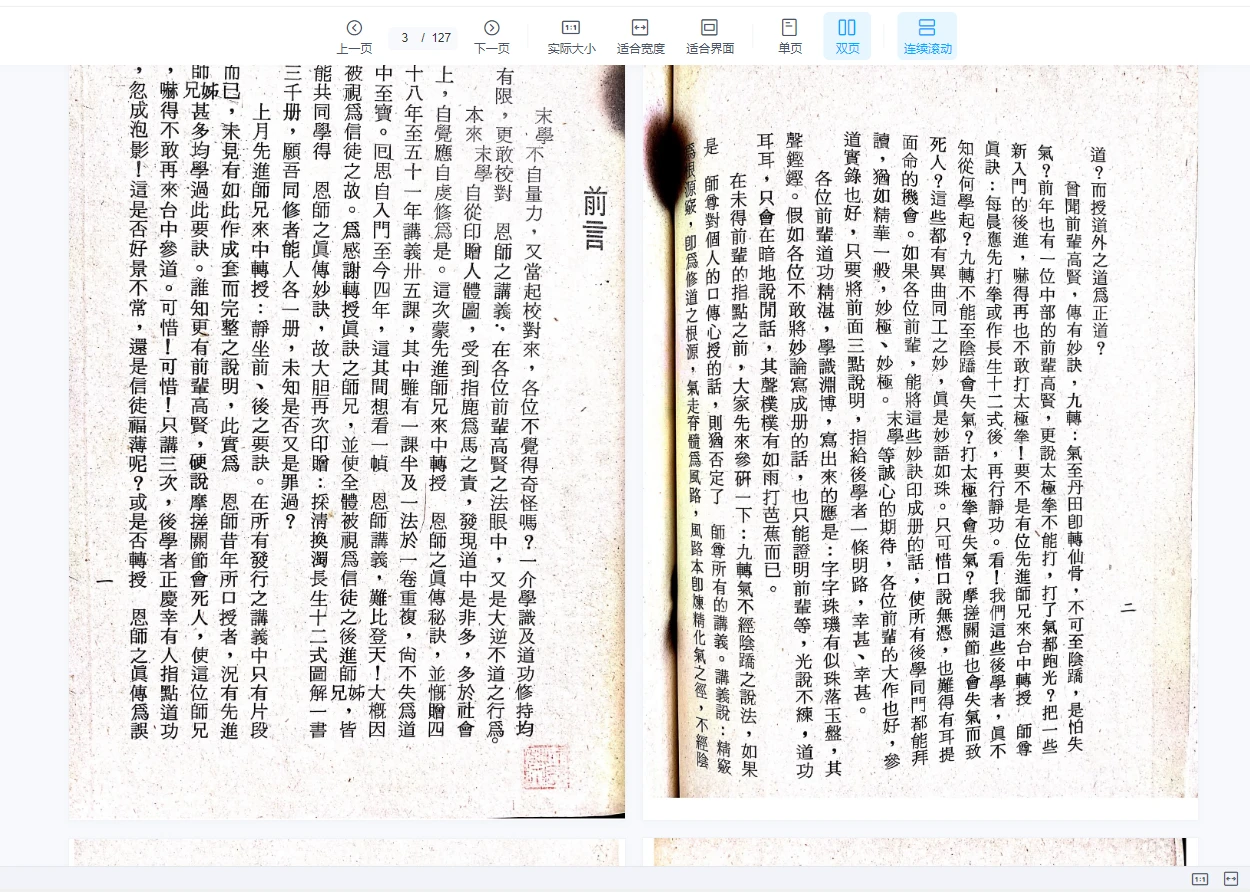 上一页
3 / 127
下一页
1:1
实际大小
适合宽度
适合界面
单页
双页
连续滚动
前言
末學不自量力，又當起校對來，各位不覺得奇怪嗎？一介學識及道功修持均
有限，更敢校對　恩師之講義，在各位前輩高賢之法眼中，又是大逆不道之行爲。
本來　末學自從印贈人體圖，受到指鹿爲馬之責，發現道中是非多，多於社會
上，自覺應自虔修爲是。這次蒙先進師兄來中轉授　恩師之眞傳秘訣，並慨贈四
十八年至五十一年講義卅五課，其中雖有一課半及一法於一卷重複，尙不失爲道
中至寶。回思自入門至今四年，這其間想看一幀　恩師講義，難比登天！大概因
被視爲信徒之故。爲感謝轉授眞訣之師兄，並使全體被視爲信徒之後進師兄姊，皆
能共同學得　恩師之眞傳妙訣，故大胆再次印贈：採清換濁長生十二式圖解一書
三千册，願吾同修者能人各一册，未知是否又是罪過？
上月先進師兄來中轉授：靜坐前、後之要訣。在所有發行之講義中只有片段
而已，未見有如此作成套而完整之說明，此實爲　恩師昔年所口授者，況有先進
師兄姊甚多均學過此要訣。誰知更有前輩高賢，硬說摩搓關節會死人，使這位師兄
，嚇得不敢再來台中參道。可惜！可惜！只講三次，後學者正慶幸有人指點道功
，忽成泡影！這是否好景不常，還是信徒福薄呢？或是否轉授　恩師之眞傳爲誤
一
二
道？而授道外之道爲正道？
曾聞前輩高賢，傳有妙訣，九轉：氣至丹田卽轉仙骨，不可至陰蹻，是怕失
氣？前年也有一位中部的前輩高賢，更說太極拳不能打，打了氣都跑光？把一些
新入門的後進，嚇得再也不敢打太極拳！要不是有位先進師兄來台中轉授　師尊
眞訣：每晨應先打拳或作長生十二式後，再行靜功。看！我們這些後學者，眞不
知從何學起？九轉不能至陰蹻會失氣？打太極拳會失氣？摩搓關節也會失氣而致
死人？這些都有異曲同工之妙，眞是妙語如珠。只可惜口說無憑，也難得有耳提
面命的機會。如果各位前輩，能將這些妙訣印成册的話，使所有後學同門都能拜
讀，猶如精華一般，妙極、妙極。末學等誠心的期待，各位前輩的大作也好，參
道實錄也好，只要將前面三點說明，指給後學者一條明路，幸甚、幸甚。
各位前輩道功精湛，學識淵博，寫出來的應是：字字珠璣有似珠落玉盤，其
聲鏗鏗。假如各位不敢將妙論寫成册的話，也只能證明前輩等，光說不練，道功
耳耳，只會在暗地說閒話，其聲樸樸有如雨打芭蕉而已。
在未得前輩的指點之前，大家先來參研一下：九轉氣不經陰蹻之說法，如果
是　師尊對個人的口傳心授的話，則猶否定了　師尊所有的講義。講義說：精竅
爲根源竅，卽爲修道之根源，氣走脊髓爲風路，風路本卽陳精化氣之徑，不經陰
1:1